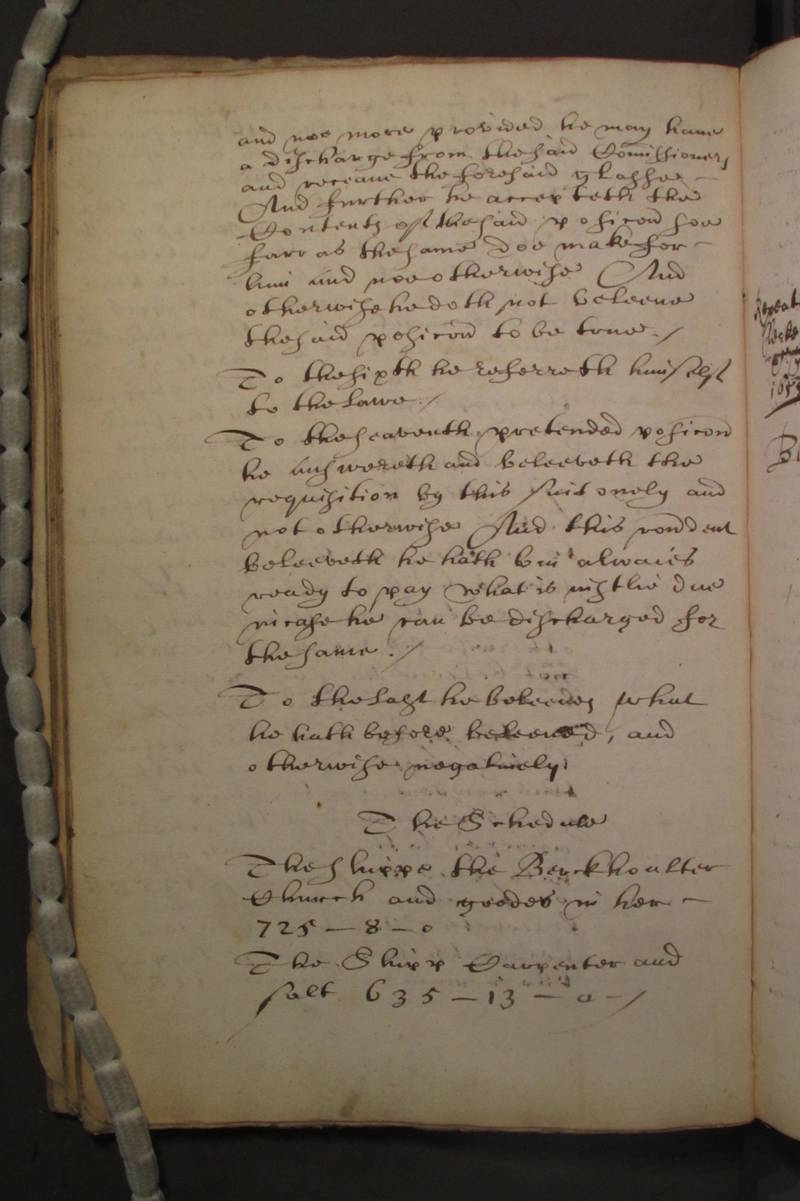 and noe more provided he may have
a discharge from the said Comissioners
and receive the foresaid glasses
And further he accepteth the
Contents of the said posicon soe
farr as the same doe make for
him and noe otherwise And
otherwise he doth not beleeve
the said posicon to be true./
To the sixth he referreth himself
to the Lawe./
To the seaventh pretended posicon
he answereth and beleeveth the
requisition by this suit onely and
not otherwise And this rondent
beleeveth he hath bin alwaies
ready to pay what is justlie due
in case he can be discharged for
the same./
To the last he beleeves what
he hath before beleeved, and
otherwise negatively
The Schedule
The shippe the Berckhoulter
Church and goodes in her
725 - 8 - 0
The Shipp Carpenter and
salt 635 - 13 - 0 -/
Repeat